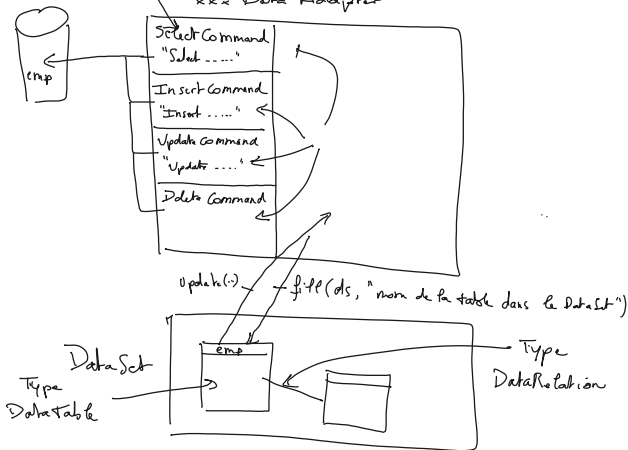 xxx Data Adapter
Select Command
"Select ....."
emp
Insert Command
"Insert ....."
Update Command
"Update ...."
Delete Command
update(..)
fill(ds, "nom de la table dans le DataSet")
emp
DataSet
Type
DataTable
Type
DataRelation